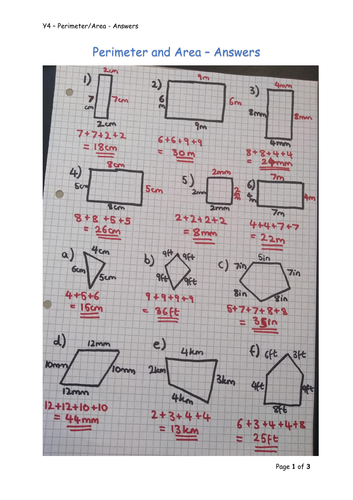 Y4 – Perimeter/Area - Answers
Perimeter and Area – Answers
1) 2cm 7cm 7cm 2cm
7+7+2+2
= 18cm
2) 9m 6m 6m 9m
6+6+9+9
= 30m
3) 4mm 8mm 8mm 4mm
8+8+4+4
= 24mm
4) 8cm 5cm 5cm 8cm
8+8+5+5
= 26cm
5) 2mm 2mm 2mm 2mm
2+2+2+2
= 8mm
6) 7m 4m 4m 7m
4+4+7+7
= 22m
a) 4cm 6cm 5cm
4+5+6
= 15cm
b) 9ft 9ft 9ft 9ft
9+9+9+9
= 36ft
c) 5in 7in 7in 8in 8in
5+7+7+8+8
= 35in
d) 12mm 10mm 10mm 12mm
12+12+10+10
= 44mm
e) 4km 2km 3km 4km
2+3+4+4
= 13km
f) 6ft 3ft 4ft 4ft 8ft
6+3+4+4+8
= 25ft
Page 1 of 3